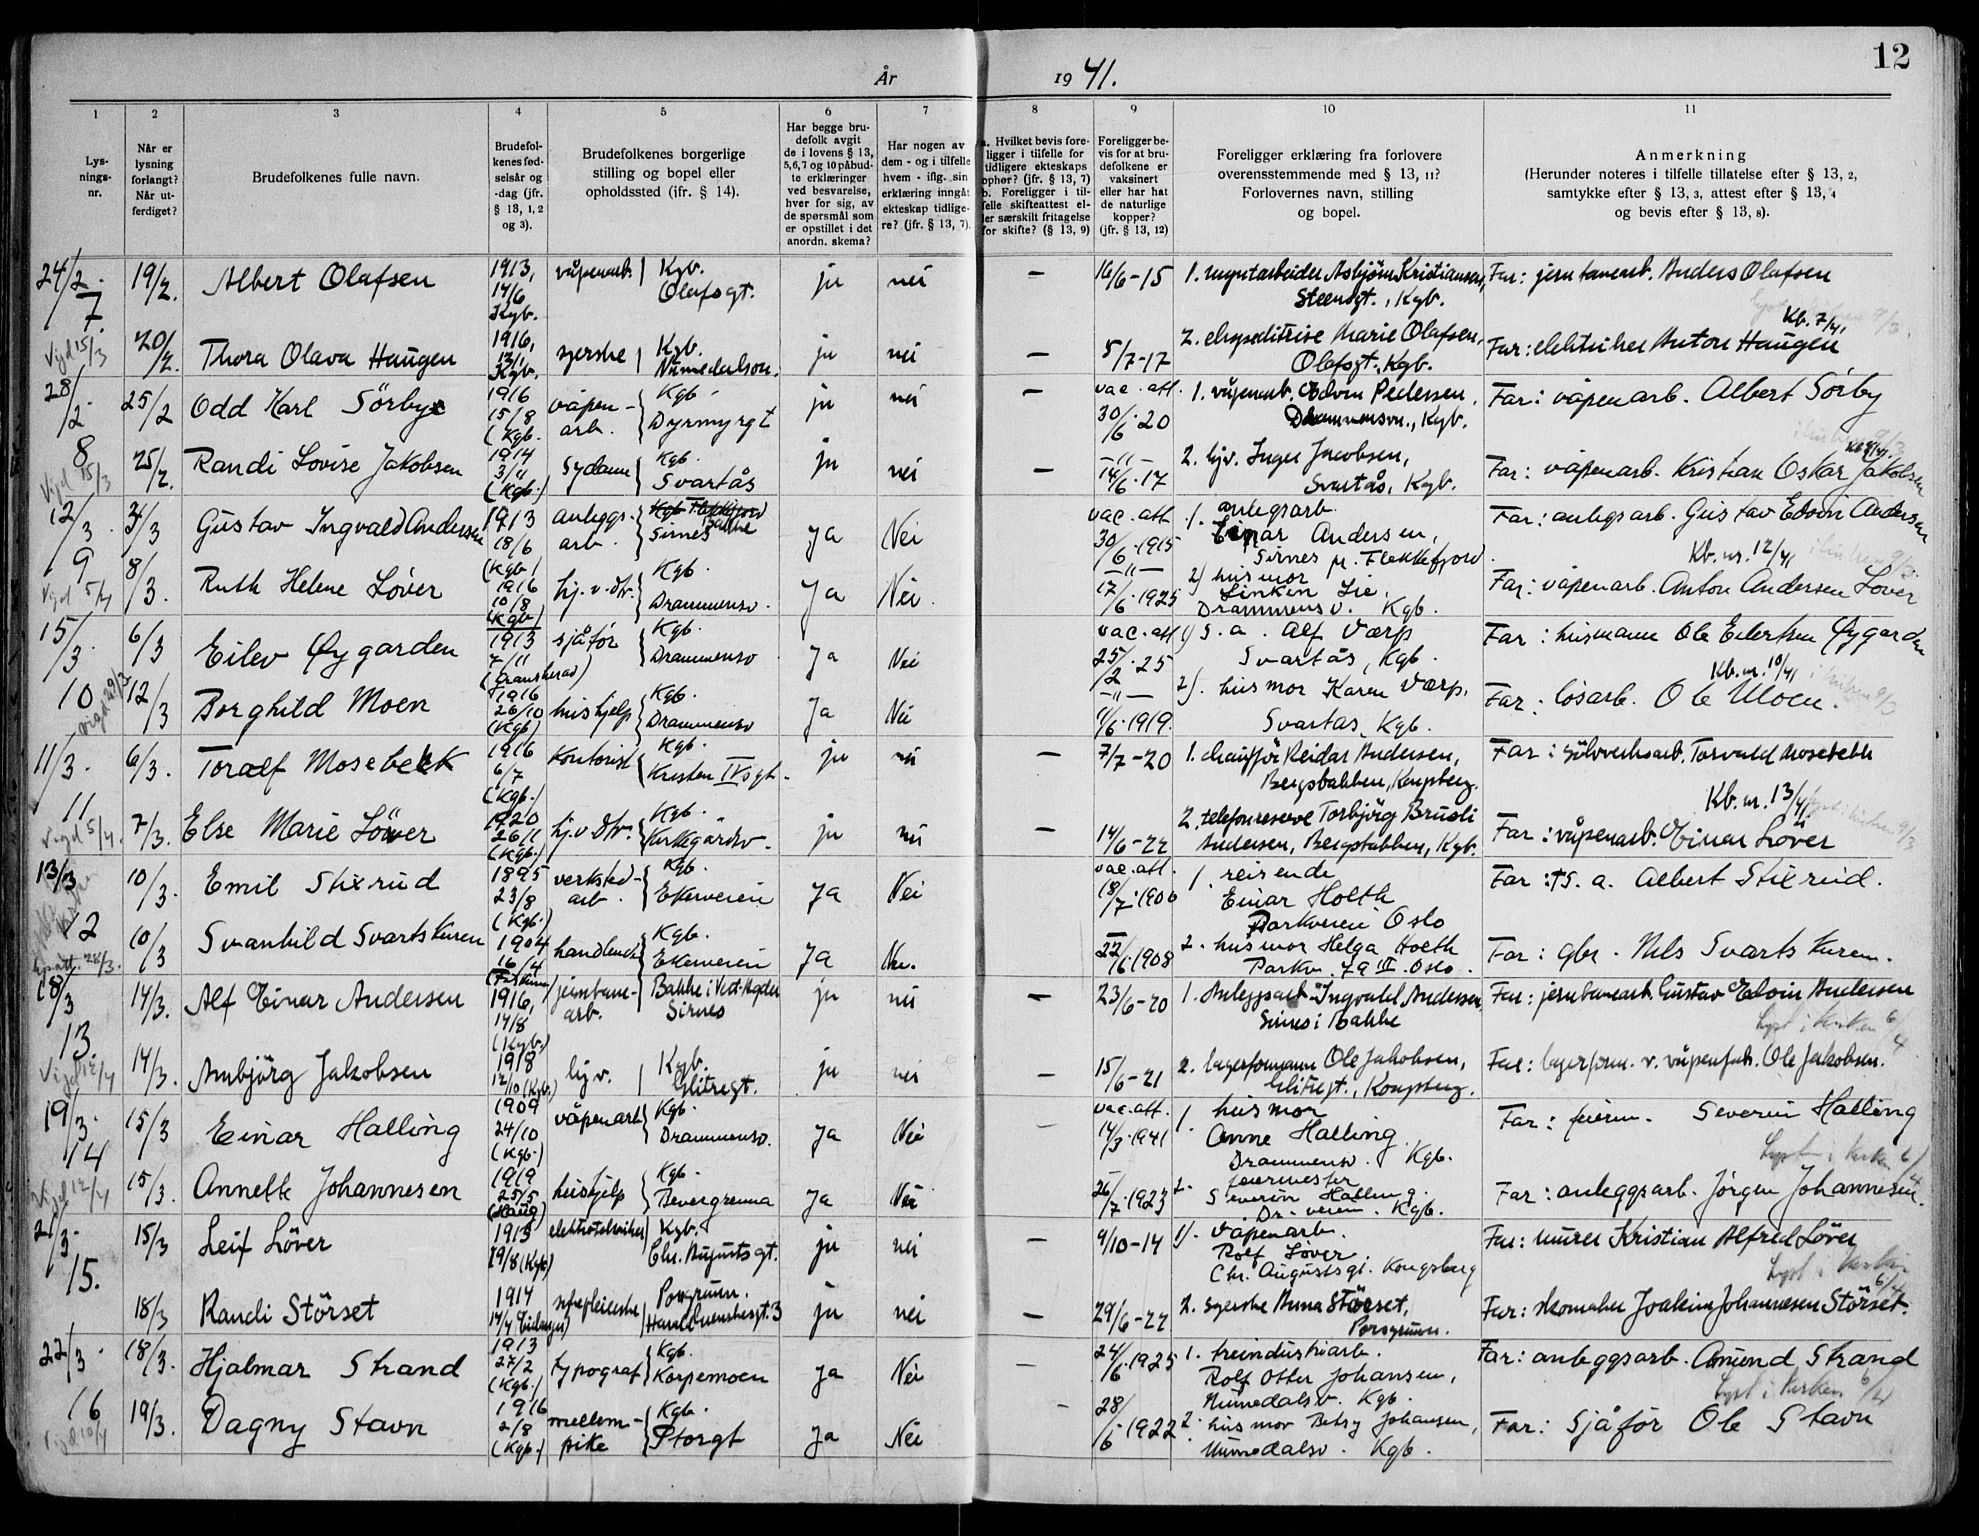 12
År 1941.
1 2 3 4 5 6 7 8 9 10 11
Lys-
nings-
nr.
Når er
lysning
forlangt?
Når ut-
ferdiget?
Brudefolkenes fulle navn.
Brudefol-
kenes fød-
selsår og
-dag (jfr.
§ 13, 1, 2
og 3).
Brudefolkenes borgerlige
stilling og bopel eller
opholdssted (ifr. § 14).
Har begge bru-
defolk avgit
de i lovens § 13,
5,6,7 og 10 påbud-
te erklæringer
ved besvarelse,
hver for sig, av
de spørsmål som
er opstillet i det
anordn. skema?
Har nogen av
dem - og i tilfelle
hvem - iflg. sin
erklæring inngått
ekteskap tidlige-
re? (jfr. § 13, 7).
a. Hvilket bevis fore-
ligger i tilfelle for
tidligere ekteskaps
ophør? (jfr. § 13, 7)
b. Foreligger i til-
felle skifteattest el-
ler særskilt fritagelse
for skifte? (§ 13, 9)
Foreligger be-
vis for at bru-
defolkene er
vaksinert
eller har hat
de naturlige
kopper?
(jfr. § 13, 12)
Foreligger erklæring fra forlovere
overensstemmende med § 13, 11?
Forlovernes navn, stilling
og bopel.
Anmerkning
(Herunder noteres i tilfelle tillatelse efter § 13, 2,
samtykke efter § 13, 3, attest efter § 13, 4
og bevis efter § 13, 8).
24/2. 7 19/2. Albert Olafsen 1913, 14/6 Kgb. våpenarb. Kgb. Olafsgt. ja nei — 16/6-15 1. myntarbeider Asbjörn Kristiansen, Steensgt., Kgb. Far: jernbanearb. Anders Olafsen
Kb. 7/41
Vigd 15/3 20/2. Thora Olava Haugen 1916, Kgb. syerske Kgb. ja nei — 5/7-17 2. ekspeditrise Marie Olafsen, Olafsgt., Kgb. Far: elektriker Anton Haugen
28/2. 8 25/2 Odd Karl Sörby 1916 15/8 (Kgb. våpen-arb. Kgb. Dyrmyrgt ja nei — vac. att. 30/6.20 1. våpenarb. Edvin Pedersen, Drammensv., Kgb. Far: våpenarb. Albert Sörby
Vigd 15/3 25/2. Randi Lovise Jakobsen 1914 3/11 (Kgb.) sydame Kgb. Svartås ja nei — —"— 14/6.17 2. hjv. Inger Jacobsen, Svartås, Kgb. Far: våpenarb. Kristian Oskar Jakobsen
12/3. 9 4/3 Gustav Ingvald Andersen 1913 18/6 (Kgb) anleggs-arb. Sirnes Bakke ja Nei vac. att. 30/6.1915 1. anlegsarb. Einar Andersen, Sirnes pr. Flekkefjord. Far: anlegsarb. Gustav Edvin Andersen
Kb. nr. 12/41
Vigd 5/4 8/3. Ruth Helene Löver 1916 10/8 (Kgb) hj. v. dtr. Kgb. Drammensv. ja Nei. —"— 17/6.1925 2) husmor Linken Lie, Drammensv. Kgb. Far: våpenarb. Anton Andersen Löver
15/3. 10 6/3 Eilev Øygarden 1913 7/11 (Gransherad) sjåför Kgb. Drammensv ja Nei vac. att 25/2.25 1) s. a. Alf Værp Svartås, Kgb. Far: husmann Ole Eilertsen Øygarden
Kb. nr. 10/41
Vigd 29/3 12/3 Borghild Moen 1916 26/10 (Kgb) hushjelp Kgb. Drammensv ja Nei —"— 11/6.1919. 2). husmor Karen Værp, Svartås, Kgb. Far: løsarb. Ole Moen.
11/3. 11 6/3. Toralf Mosebekk 1916 6/7 (Kgb.) kontorist Kgb. Kristen IVs gt. ja nei — 7/7-20 1. chaufför Reidar Andersen, Bergsbakken, Kongsberg. Far: Sölvverksarb. Torvald Mosebekk
Kb. nr. 13/41
Vigd 5/4. 7/3. Else Marie Löver 1920 26/1 (Kgb.) hj. v. dtr. Kgb. Kirkegårdsv. ja nei — 14/6-22 2. telefonreserve Torbjörg Brusli Andersen, Bergsbakken, Kgb. Far: våpenarb. Einar Löver
13/3 12 10/3. Emil Stixrud 1895 23/8 (Kgb.) verksted-arb. Kgb. Ekerveien ja Nei vac. att. 18/7.1900 1. reisende Einar Holth Parkveien Oslo Far: † S. a. Albert Stixrud.
10/3 Svanhild Svartskuren 1904 16/4 handlende Kgb. Ekerveien ja Nei. 22/6.1908 2. husmor Helga Holth Parkv. 79 III. Oslo. Far: gbr. Nils Svartskuren.
18/3 13. 14/3. Alf Einar Andersen 1916, 14/8 (Kgb.) jernbane-arb. Bakke i Vest-Agder Sirnes ja nei — 23/6-20 1. Anleggsarb. Ingvald Andersen, Sirnes i Bakke Far: jernbanearb. Gustav Edvin Andersen
Lyst i kirken 6/4
Vigd 12/4 14/3. Ambjörg Jakobsen 1918 12/10 (Kgb.) hjv. Kgb. Glitregt. ja nei — 15/6-21 2. lagerformann Ole Jakobsen, Glitregt., Kongsberg. Far: lagerform. v. våpenfab. Ole Jakobsen.
19/3. 14 15/3 Einar Halling 1909 24/10 (Kgb.) våpenarb Kgb. Drammensv. ja Nei — vac. att. 14/3.1941 1. husmor Anne Halling Drammensv. Kgb. Far: feierm. Severin Halling
Lyst i kirken 6/4
Vigd 12/4 15/3. Annette Johannesen 1919 25/5 (Haug) hushjelp Kgb. Bevergrenna ja Nei 26/7.1923 2. feiermester Severin Halling. Dr. veien. Kgb. Far: anleggsarb. Jörgen Johannesen.
21/3. 15. 15/3 Leif Löver 1913 19/8 (Kgb) elektrotekniker Kgb. Chr. Augustsgt. ja nei — 9/10-14 1). våpenarb. Rolf Löver Chr. Augustsgt. Kongsberg Far: murer Kristian Alfred Löver
Lyst i kirken 6/4
18/3 Randi Störset 1914 14/4 Porsgrunn. ja nei — 29/6-22 2. syerske Anna Störset, Porsgrunn. Far: skomaker Joakim Johannesen Störset.
22/3. 16 18/3. Hjalmar Strand 1913 27/2 (Kgb.) typograf Kgb. Korpemoen ja Nei — 24/6.1925 1. treindustriarb. Rolf Otter Johansen, Numedalsv. Kgb. Far: anleggsarb. Amund Strand
Lyst i kirken 6/4
Vigd 10/4 19/3. Dagny Stavn 1916 2/8 (Kgb.) mellem-pike Kgb. Storgt ja Nei - 28/6.1922 2. husmor Betsy Johansen, Numedalsv. Kgb. Far: Sjåför Ole Stavn